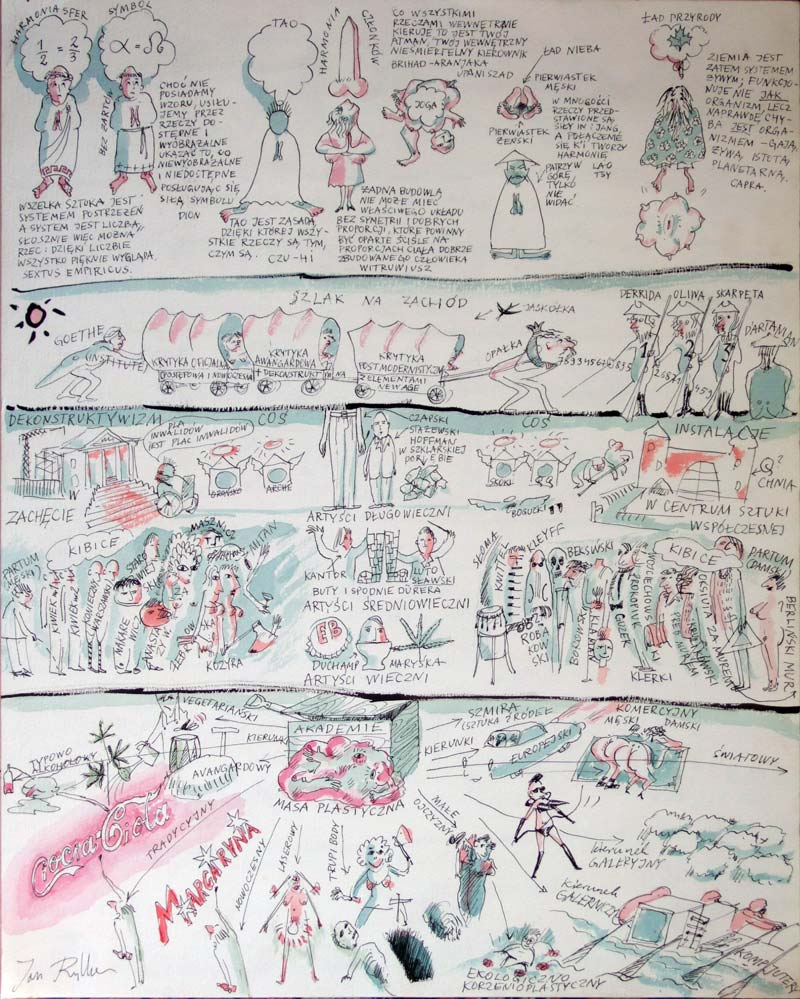 HARMONIA SFER
1/2 = 2/3
SYMBOL
α = Ω
BEZ ŻARTÓW
CHOĆ NIE
POSIADAMY
WZORU, USIŁU-
JEMY PRZEZ
RZECZY DO-
STĘPNE I
WYOBRAŻALNE
UKAZAĆ TO, CO
NIEWYOBRAŻALNE
I NIEDOSTĘPNE
POSŁUGUJĄC SIĘ
SIŁĄ SYMBOLU
DION
WSZELKA SZTUKA JEST
SYSTEMEM POSTRZEŻEŃ
A SYSTEM JEST LICZBĄ,
SŁUSZNIE WIĘC MOŻNA
RZEC: DZIĘKI LICZBIE
WSZYSTKO PIĘKNIE WYGLĄDA.
SEXTUS EMPIRICUS.
TAO
TAO JEST ZASADĄ,
DZIĘKI KTÓREJ WSZY-
STKIE RZECZY SĄ TYM,
CZYM SĄ. CZU-HI
HARMONIA
CZŁONKÓW
ŻADNA BUDOWLA
NIE MOŻE MIEĆ
WŁAŚCIWEGO UKŁADU
BEZ SYMETRII I DOBRYCH
PROPORCJI, KTÓRE POWINNY
BYĆ OPARTE ŚCIŚLE NA
PROPORCJACH CIAŁA DOBRZE
ZBUDOWANEGO CZŁOWIEKA
WITRUWIUSZ
CO WSZYSTKIMI
RZECZAMI WEWNĘTRZNIE
KIERUJE TO JEST TWÓJ
ATMAN, TWÓJ WEWNĘTRZNY
NIEŚMIERTELNY KIEROWNIK
BRIHAD-ARANJAKA
UPANISZAD
JOGA
ŁAD NIEBA
PIERWIASTEK
MĘSKI
PIERWIASTEK
ŻEŃSKI
W MNOGOŚCI
RZECZY PRZED-
STAWIONE SĄ
SIŁY IN I JANG,
A POŁĄCZENIE
SIĘ K'I TWORZY
HARMONIE
LAO TSY
PATRZY W
GÓRĘ,
TYLKO
NIE
WIDAĆ
ŁAD PRZYRODY
ZIEMIA JEST
ZATEM SYSTEMEM
ŻYWYM; FUNKCJO-
NUJE NIE JAK
ORGANIZM, LECZ
NAPRAWDĘ CHY-
BA JEST ORGA-
NIZMEM - GAJĄ,
ŻYWĄ ISTOTĄ
PLANETARNĄ.
CAPRA.
SZLAK NA ZACHÓD
GOETHE
INSTITUTE
KRYTYKA OFICJALNA
KRYTYKA
AWANGARDOWA
+ DEKONSTRUKTYWNA
KRYTYKA
POSTMODERNISTYCZNA
Z ELEMENTAMI
NEW AGE
JASKÓŁKA
OPAŁKA
DERRIDA OLIWA SKARPETA
1 2 3
DARTAMAN
DEKONSTRUKTYWIZM
DLA
INWALIDÓW
JEST PLAC INWALIDÓW
W
ZACHĘCIE
COŚ
GROŃSKO
ARCHE
CZAPSKI
STAŻEWSKI
HOFFMAN
W SZKLARSKIEJ
PORĘBIE
ARTYŚCI DŁUGOWIECZNI
COŚ
BOGUCKI
INSTALACJE
W CENTRUM SZTUKI
WSPÓŁCZESNEJ
KIBICE
PARTUM
(MĘSKI)
KWIEK
KWIEK
KOZYRA
KANTOR
LUTO
SŁAWSKI
BUTY I SPODNIE DÜRERA
ARTYŚCI ŚREDNIOWIECZNI
DUCHAMP
MARYŚKA
ARTYŚCI WIECZNI
SŁOMA
KNITTEL
KLEYFF
ROBA
KOW
SKI
BEKSIŃSKI
BOROWSKI
KLAMAN
PROKOPIUK
GUZEK
WOJCIECHOWSKI
KLERKI
KIBICE
PARTUM
(DAMSKI)
BERLIŃSKI MUR
TYPOWO
ALKOHOLOWY
WEGETARIAŃSKI
KIERUNKI
AWANGARDOWY
Ciocia-Ciola
TRADYCYJNY
MARGARYNA
NOWOCZESNY
LASEROWY
TRUPI BODY
AKADEMIE
MASA PLASTYCZNA
MAŁE
OJCZYZNY
SZMIRA
(SZTUKA ŹRÓDEŁ
KIERUNKI
EUROPEJSKI
KOMERCYJNY
MĘSKI DAMSKI
ŚWIATOWY
kierunek
GALERYJNY
kierunek
GALERNICZY
KOMPUTERY
EKOLOGICZNO
KORZENIOPLASTYCZNY
Jan Rylke